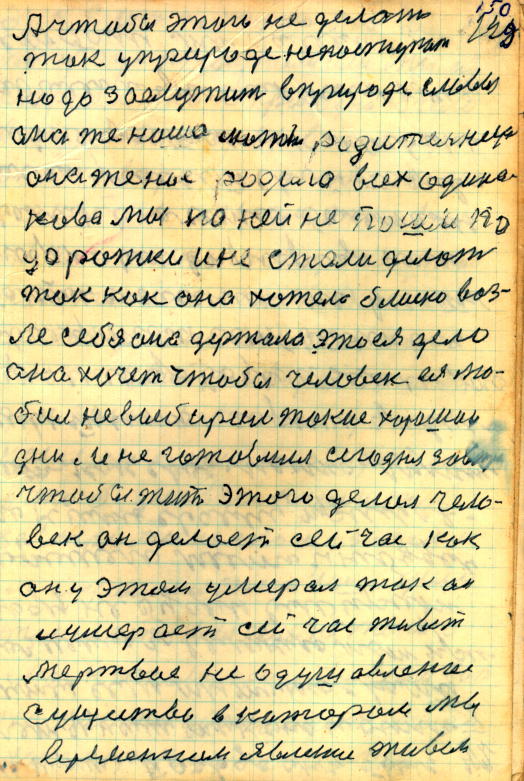 150
129
А чтобы этого не делать
так у природе не поступат
надо заслужит в природе славы
она же наша мать родителница
она же нас родила всех одина-
кова мы по ней не пошли по
дорожки и не стали делат
так как она хотела близко воз-
ле себя она держала это ея дело
она хочет чтобы человек ея лю-
бил не выбирал такие хорошаи
дни и не готовился сегодня
чтобы жит этого делал чело-
век он делает сейчас как
он у этом умерал так он
и умерает сейчас живет
мертвое не одушавленае
существо в котором мы
временнаи явлении живем